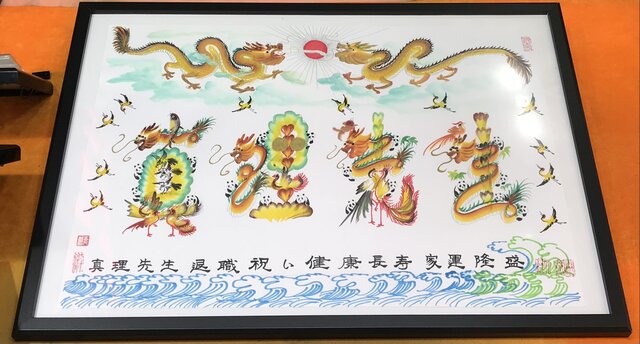 真理先生
真理先生退職祝い健康長寿家運隆盛